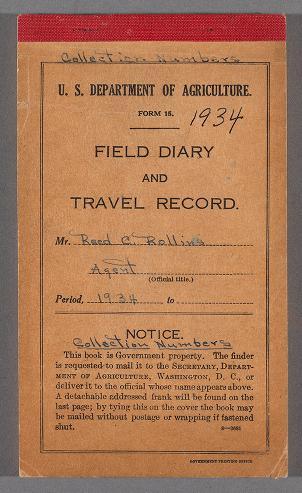 Collection Numbers
U. S. DEPARTMENT OF AGRICULTURE.
FORM 15.
1934
FIELD DIARY
AND
TRAVEL RECORD.
Mr. Reed C. Rollins
Agent
(Official title.)
Period, 1934 to
NOTICE.
Collection Numbers
This book is Government property. The finder
is requested to mail it to the SECRETARY, DEPART-
MENT OF AGRICULTURE, WASHINGTON, D. C., or
deliver it to the official whose name appears above.
A detachable addressed frank will be found on the
last page; by tying this on the cover the book may
be mailed without postage or wrapping if fastened
shut.
GOVERNMENT PRINTING OFFICE